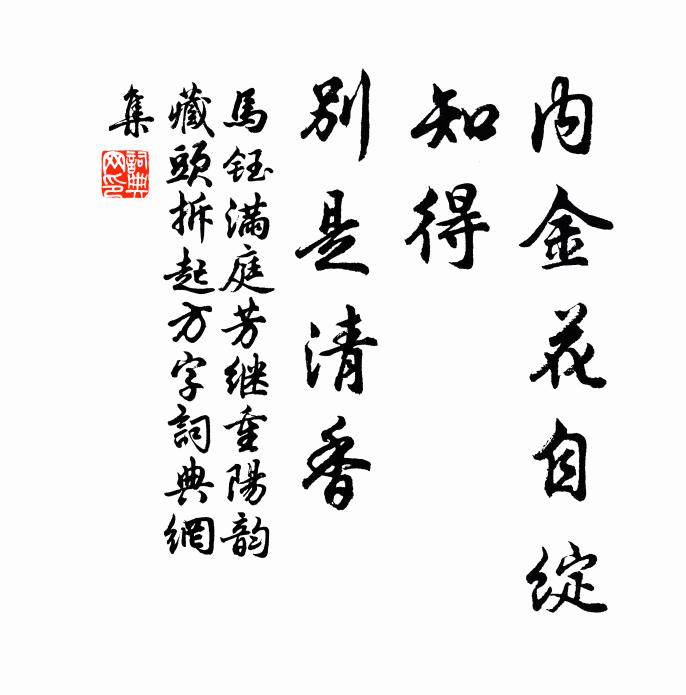 内金花自綻
知得
别是清香
馬鈺滿庭芳继重陽韵
藏頭拆起方字詞典網
集
詞典網印